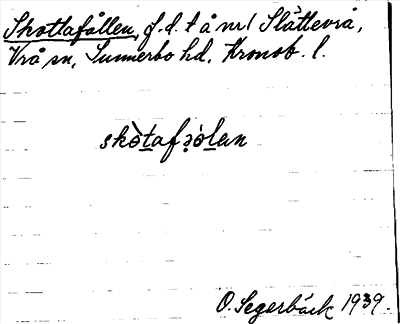 Skottafållen, f.d. t å nr 1 Slättevrå,
Vrå sn, Sunnerbo hd, Kronob. l.
skòtafjólan
O. Segerbäck 1939.